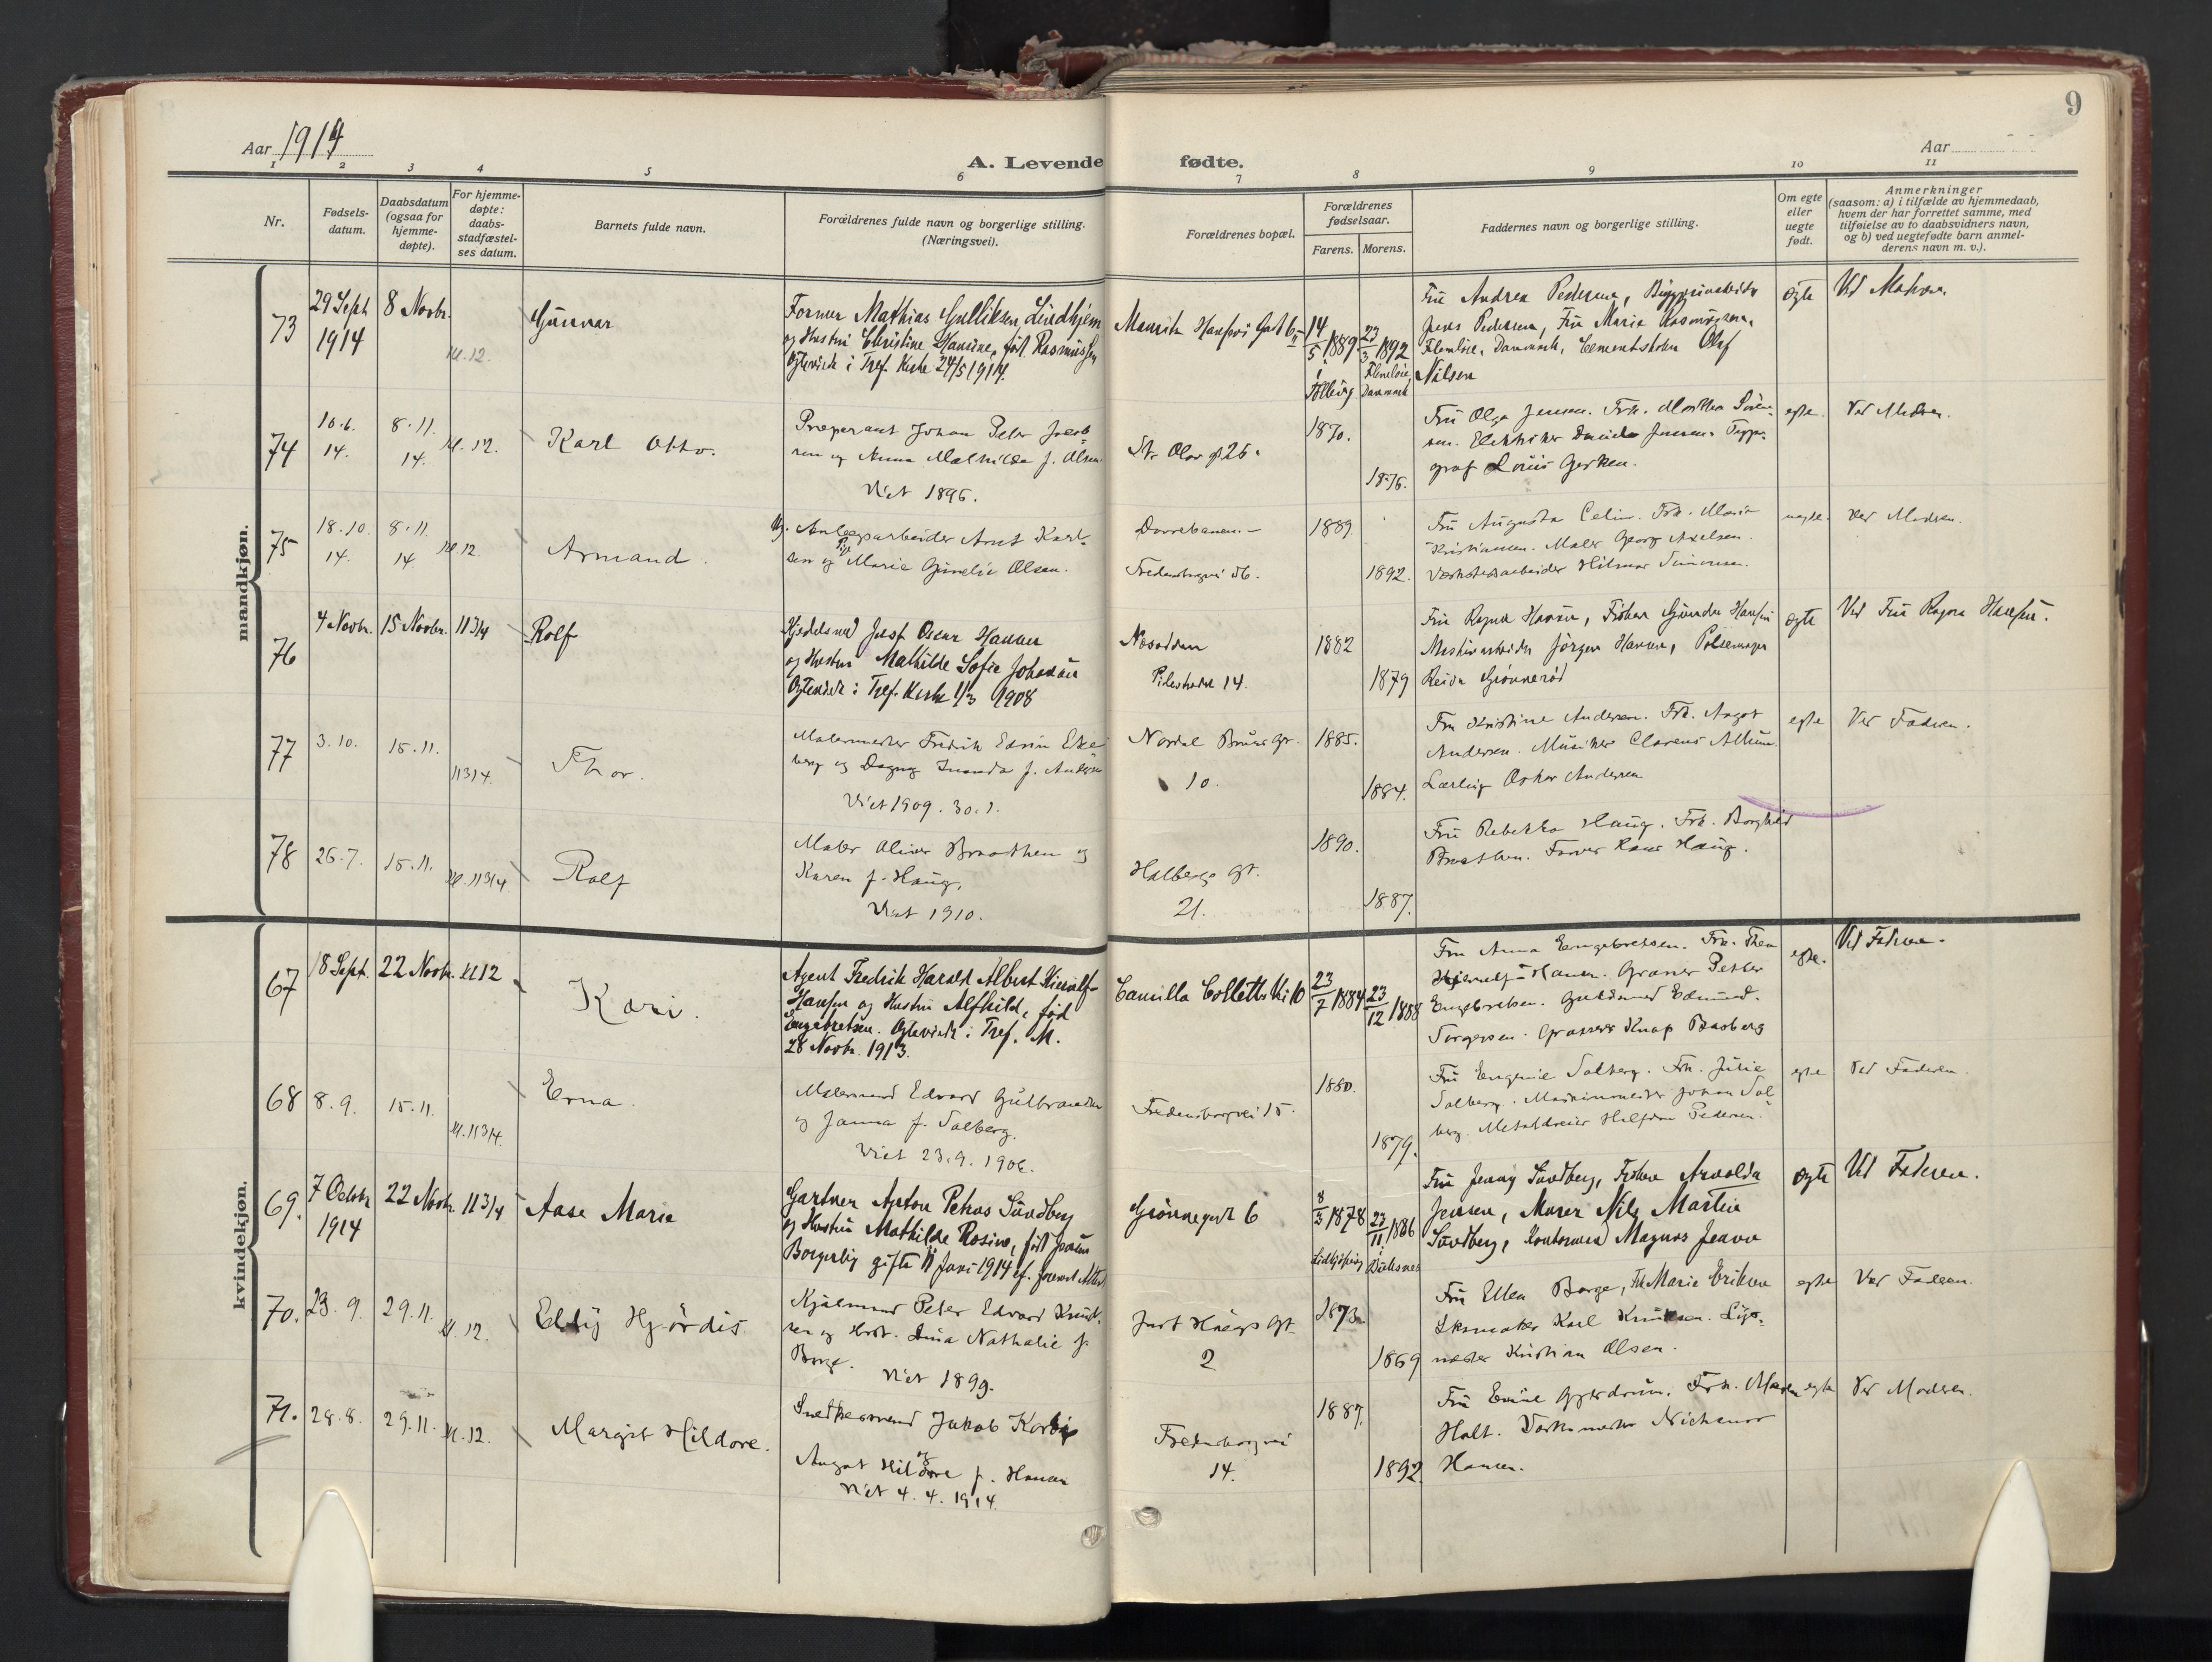 Aar 1914
A. Levende fødte.
9
Aar
1 2 3 4 5 6 7 8 9 10 11
Nr.
Fødsels-
datum.
Daabsdatum
(ogsaa for
hjemme-
døpte).
For hjemme-
døpte:
daabs-
stadfæstel-
ses datum.
Barnets fulde navn.
Forældrenes fulde navn og borgerlige stilling.
(Næringsvei).
Forældrenes bopæl.
Forældrenes
fødselsaar.
Farens. Morens.
Faddernes navn og borgerlige stilling.
Om egte
eller
uegte
født.
Anmerkninger
(saasom: a) i tilfælde av hjemmedaab,
hvem der har forrettet samme, med
tilføielse av to daabsvidners navn,
og b) ved uegtefødte barn anmel-
derens navn m. v.).
mandkjøn.
73
29 Sept
1914
8 Novbr.
Gunnar
Former Mathias Gulliksen Lindhjem
og Hustru Christine Hansine, født Rasmussen
Egteviede i Tref. Kirke 24/5 1914.
14/5 1889
23/3 1892
Danmark
Fru Andrea Pedersen,
Jens Pedersen, Fru Marie Rasmussen,
Danmark, Olaf
Nilsen
egte
Ved Moderen
74
10.6.
14.
8.11.
14.
12.
Karl Otto.
Præperant Johan Peter Jacob-
sen og Anna Mathilde f. Olsen.
Viet 1896.
St. Olav g 25.
1870.
1876.
Fru Olga Jensen. Frk. Martha Søren-
sen. Elektriker Daniel Jensen. Typo-
graf Louis Gerken.
egte.
Ved Moderen.
75
18.10.
14.
8.11.
14
12.
Armand.
Anlægsarbeider Arnt Karl-
sen og Marie Gunelie Olsen.
Dovrebanen.-
Fredensborgvei 56.
1889.
1892.
Fru Augusta Celin. Frk. Marie
Kristiansen. Maler Georg Axelsen.
Værkstedsarbeider Hilmar Simonsen.
uegte.
Ved Moderen.
76
4 Novbr.
15 Novbr.
113/4
Rolf
Kjedelsmed Just Oscar Hansen
og Hustru Mathilde Sofie Johansen
Egteviede i Tref. Kirke 1/3 1908
Nesodden
Pilestrædet 14.
1882
1879
Fru Ragna Hansen, Frøken Gunda Hansen
Maskinarbeider Jørgen Hansen, Pølsemager
Reidar Grønnerød
egte
Ved Fru Ragna Hansen.
77
3.10.
15.11.
113/4.
Thor.
Malermester Fredrik Edvin Eke-
berg og Dagny Inanda f. Andersen
Viet 1909. 30.1.
Nordal Bruns gt.
10.
1885.
1884.
Fru Kristine Andersen. Frk. Aagot
Andersen. Musiker Clarens Allum.
Lærling Oskar Andersen
egte
Ved Faderen.
78
26.7.
15.11.
113/4
Rolf
Maler Oliver Braathen og
Karen f. Haug.
Viet 1910.
Holbergs gt.
21.
1890.
1887.
Fru Rebekka Haug. Frk. Borghild
Braathen. Farver Hans Haug.
kvindekjøn.
67
18 Sept.
22 Novbr.
12
Kari.
Agent Fredrik Harald Albert Hierulf-
Hansen og Hustru Alfhild, født
Engebretsen. Egteviede i Tref. M.
28 Novbr. 1913.
Camilla Colletts Vei 10
23/7 1884
23/12 1888
Fru Anna Engebretsen. Frk. Thea
Hierulf-Hansen. Graver Petter
Engebretsen. Guldsmed Edmund
Torgersen. Grosserer Knap Brasberg
egte.
Ved Faderen.
68
8.9.
15.11.
113/4.
Erna.
Malersvend Edvard Gulbrandsen
og Janna f. Solberg.
Viet 23.9. 1906.
Fredensborgvei 15.
1880.
1879.
Fru Eugenie Solberg. Frk. Julie
Solberg. Maskinmester Johan Sol-
berg. Metaldreier Halfdan Pedersen.
egte
Ved Faderen.
69.
7 Octobr
1914
22 Novbr.
113/4
Aase Marie
Gartner Anton Petrus Sundberg
og Hustru Mathilde Rosine, født Jensen
Borgerlig gifte 11 Juni 1914 ef. forevist Attest
Grønnegade 6
8/3 1878
Lidkjøping
23/11 1886
Fru Jenny Sundberg, Frøken Arnolda
Jensen, Murer Nils Martin
Sundberg, Kontormand Magnus Jensen
egte
Ved Faderen.
70.
23. 9.
29.11.
12.
Elly Hjørdis
Kjølmand Peter Edvard Knud-
sen og Hustr. Lina Nathalie f.
Borge.
Viet 1899.
Just Haags gt.
2
1873.
1869
Fru Ellen Borge, Frk Marie Eriksen
Skomaker Karl Knudsen.
Kristian Olsen.
egte
Ved Faderen.
71.
28.8.
29.11.
12.
Margit Hildore.
Snedkersvend Jakob Korbi
og
Aagot Hildore f. Hansen
Viet 4.4.1914.
Fredensborgvei
14.
1887.
1892.
Fru Emine Gjerdrum. Frk. Maren
Holt. Værksmester Nickanor
Hansen.
egte
Ved Moderen.